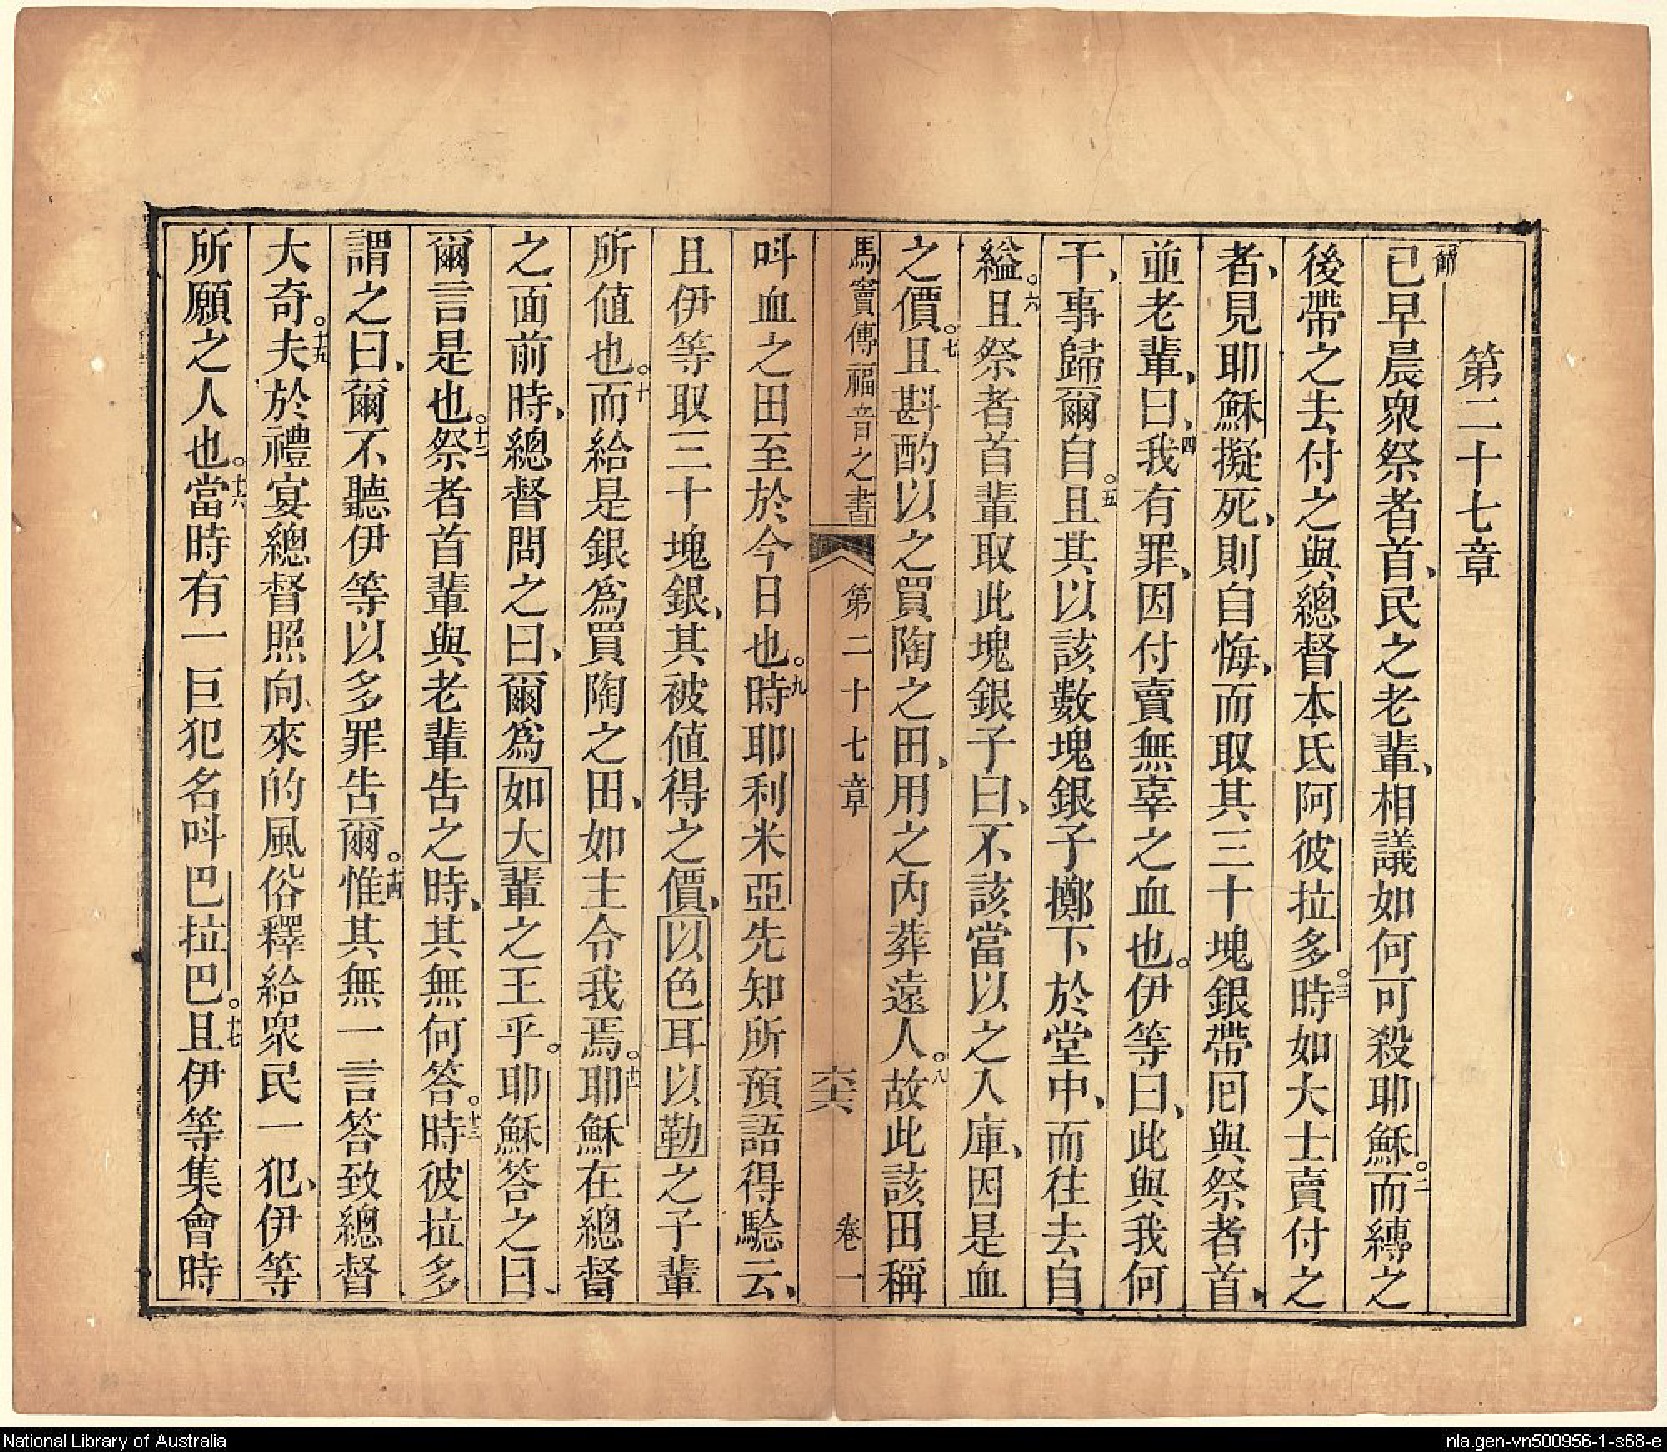 第二十七章
節
已早晨衆祭者首、民之老輩、相議如何可殺耶穌。二而縛之
後帶之去付之與總督本氏阿彼拉多。三時如大士賣付之
者、見耶穌擬死、則自悔、而取其三十塊銀帶囘與祭者首、
並老輩、曰、四我有罪、因付賣無辜之血也。伊等曰、此與我何
干、事歸爾自。五且其以該數塊銀子擲下於堂中、而往去自
縊。六且祭者首輩取此塊銀子曰、不該當以之入庫、因是血
之價。七且斟酌以之買陶之田、用之內葬遠人。八故此該田稱
馬竇傳福音之書 第二十七章 六六 卷一
呌血之田至於今日也。九時耶利米亞先知所預語得騐云、
且伊等取三十塊銀、其被値得之價、以色耳以勒之子輩
所値也。十而給是銀爲買陶之田、如主令我焉。十一耶穌在總督
之面前時、總督問之曰、爾爲如大輩之王乎。耶穌答之曰、
爾言是也。十二祭者首輩與老輩告之時、其無何答。十三時彼拉多
謂之曰、爾不聽伊等以多罪告爾。十四惟其無一言答致總督
大奇。十五夫於禮宴總督照向來的風俗釋給衆民一犯、伊等
所願之人也。十六當時有一巨犯名呌巴拉巴。十七且伊等集會時
National Library of Australia
nla.gen-vn500956-1-s68-e